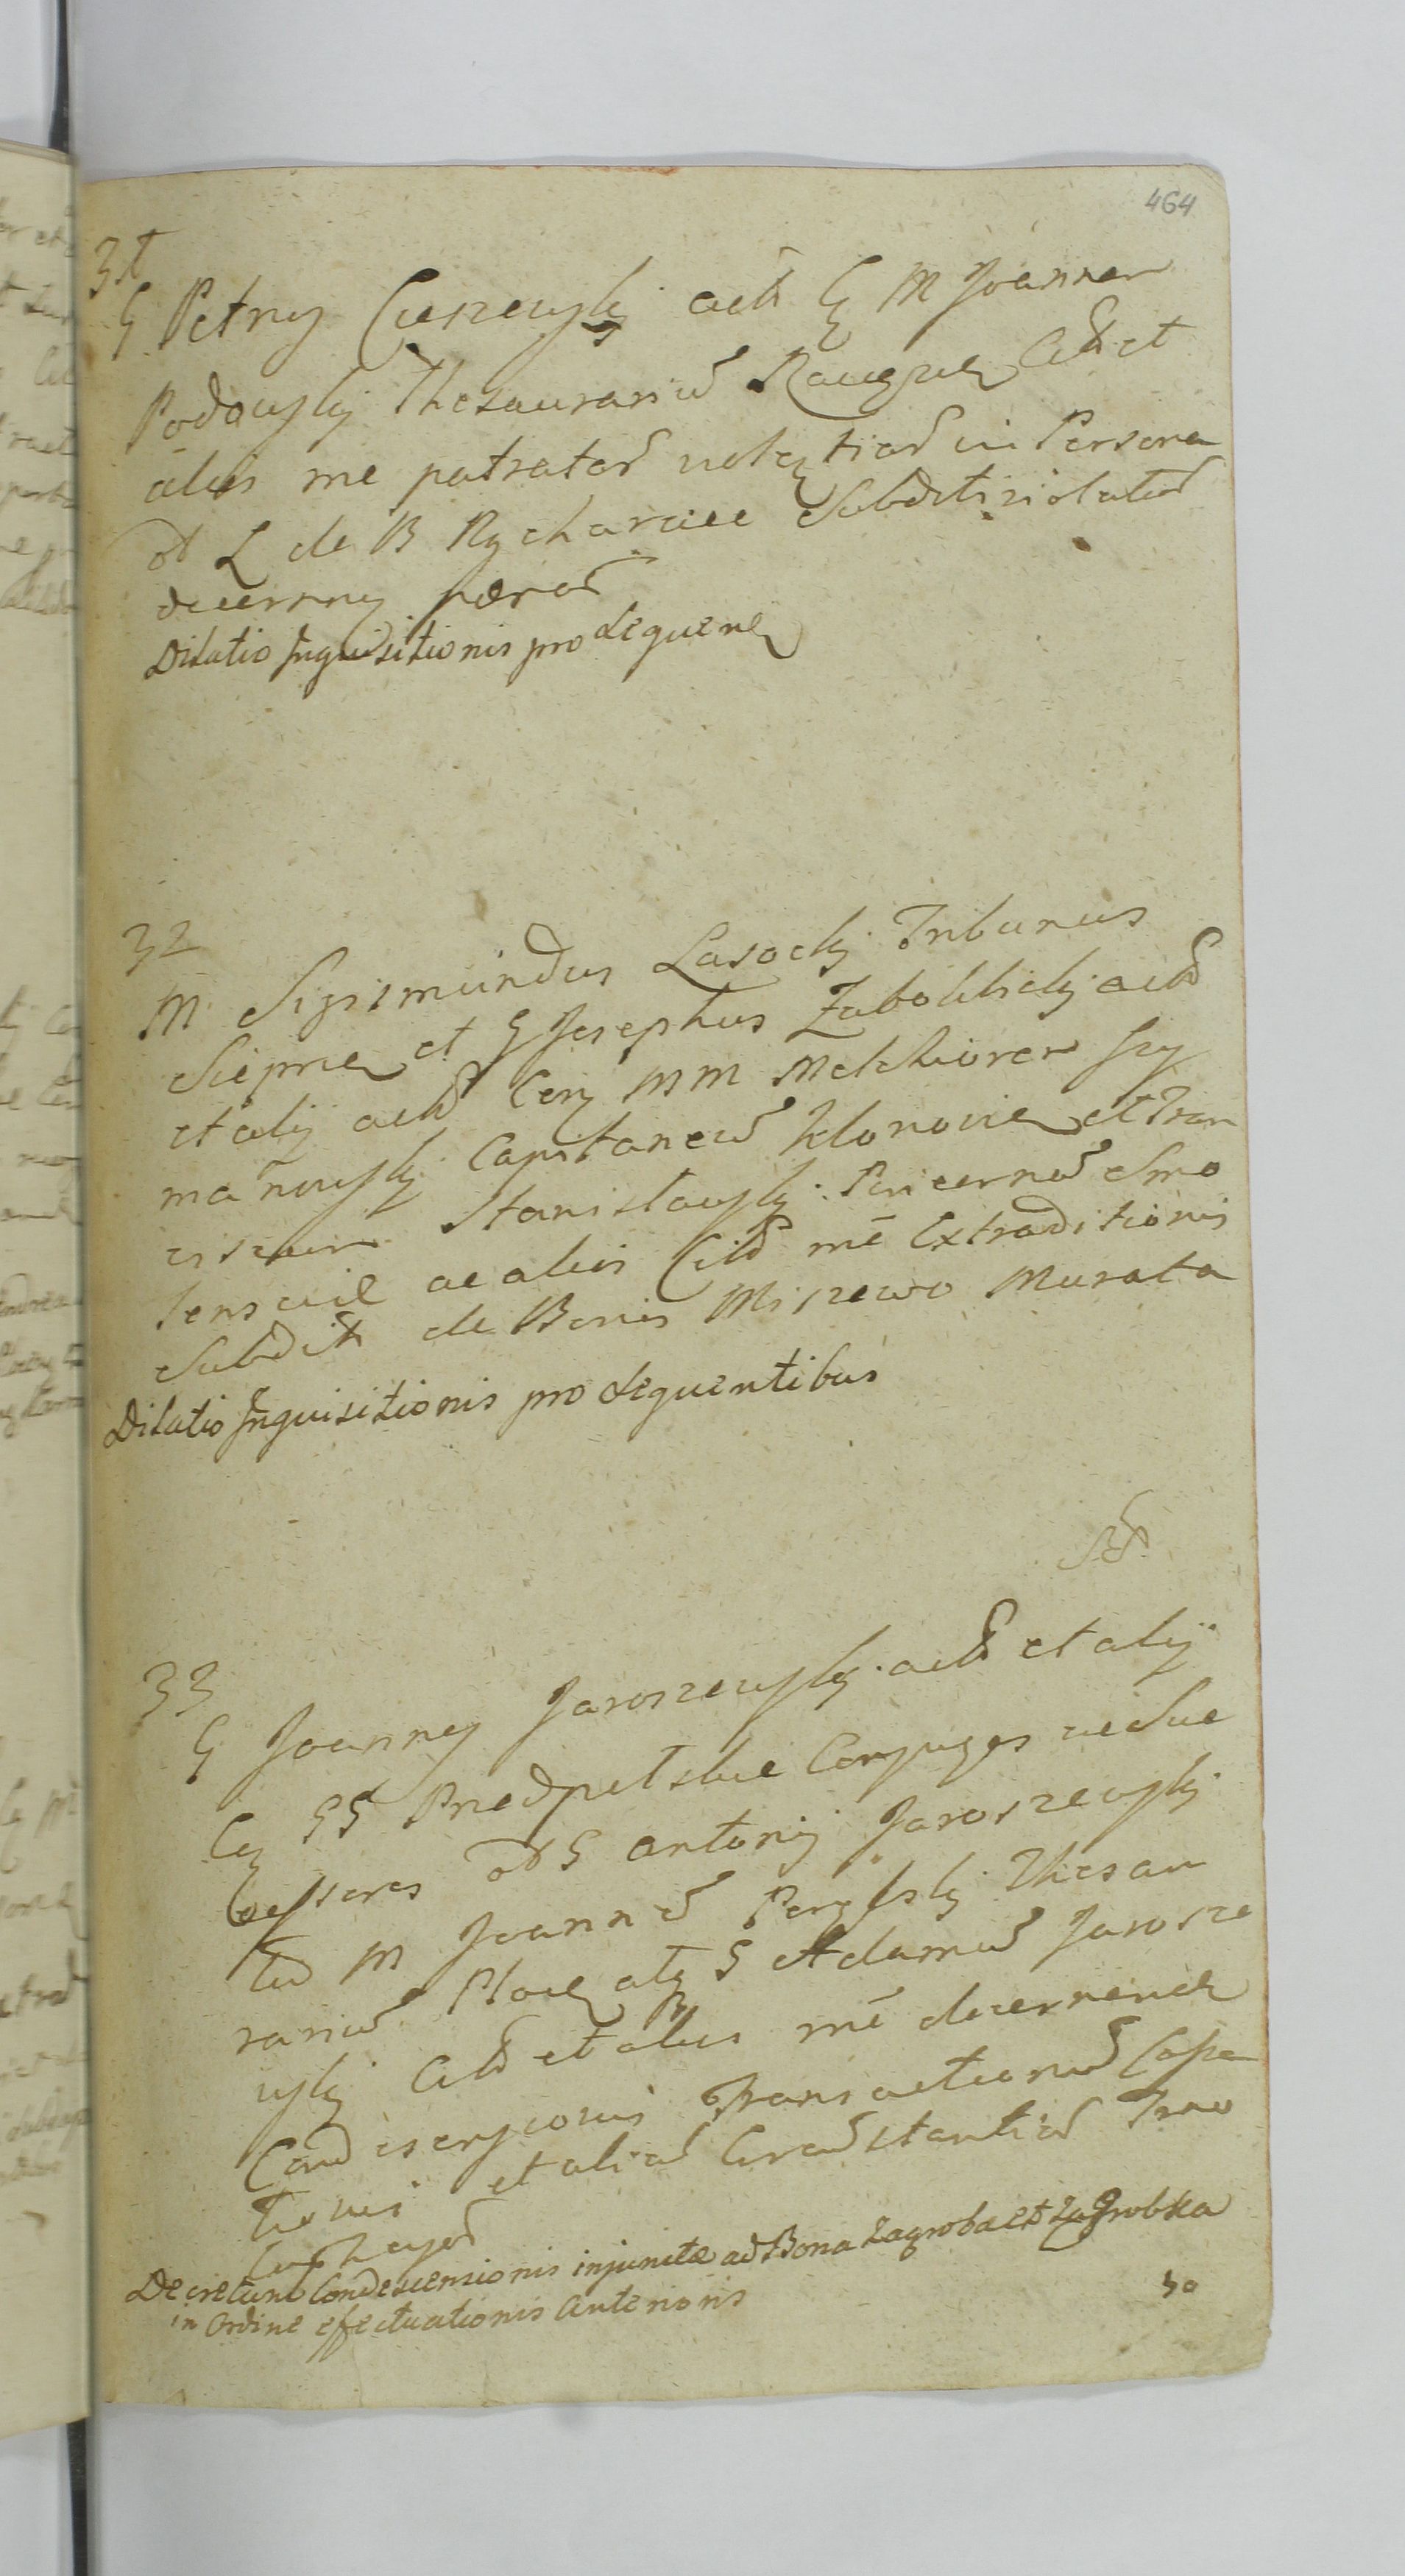 464
31
G Petrus Ciszewski act G M Joannem
Podowski Thesaurarium Raven Citt et
alios me patratar in Persona
ol L de B Rycharcice Subditi violatar
decernen pænar
Dilatio Inquisitionis pro sequen
32
M Sigismundus Lasocki Tribunus
Siepme et G Josephus Zaboklicki act
et alij act Con MM Melchiorem Szy
manowski Capitaneum Klonovien et Fran
ciscum Stanislawski Pincernam Smo
lenscie ac alios Citt me Extraditionis
Subdit de Bonis Miszewo Murata
Dilatio Inquisitionis pro sequentibus
33
G Joannes Jaroszewski act et alij
Con GG Przedpelskie Conjuges
Cessores ol G Antonij Jaroszewski
M Joannem Thesau
rarium Ploce atq G Adamum Jarosze
wski Citt et alios me decernend
Condescensionis Transactionum
tionis et aliar Circumstantiar
Decretum Condescensionis injunctæ ad Bona Zagroba et Zagrobka
in Ordine efectuationis Anterioris